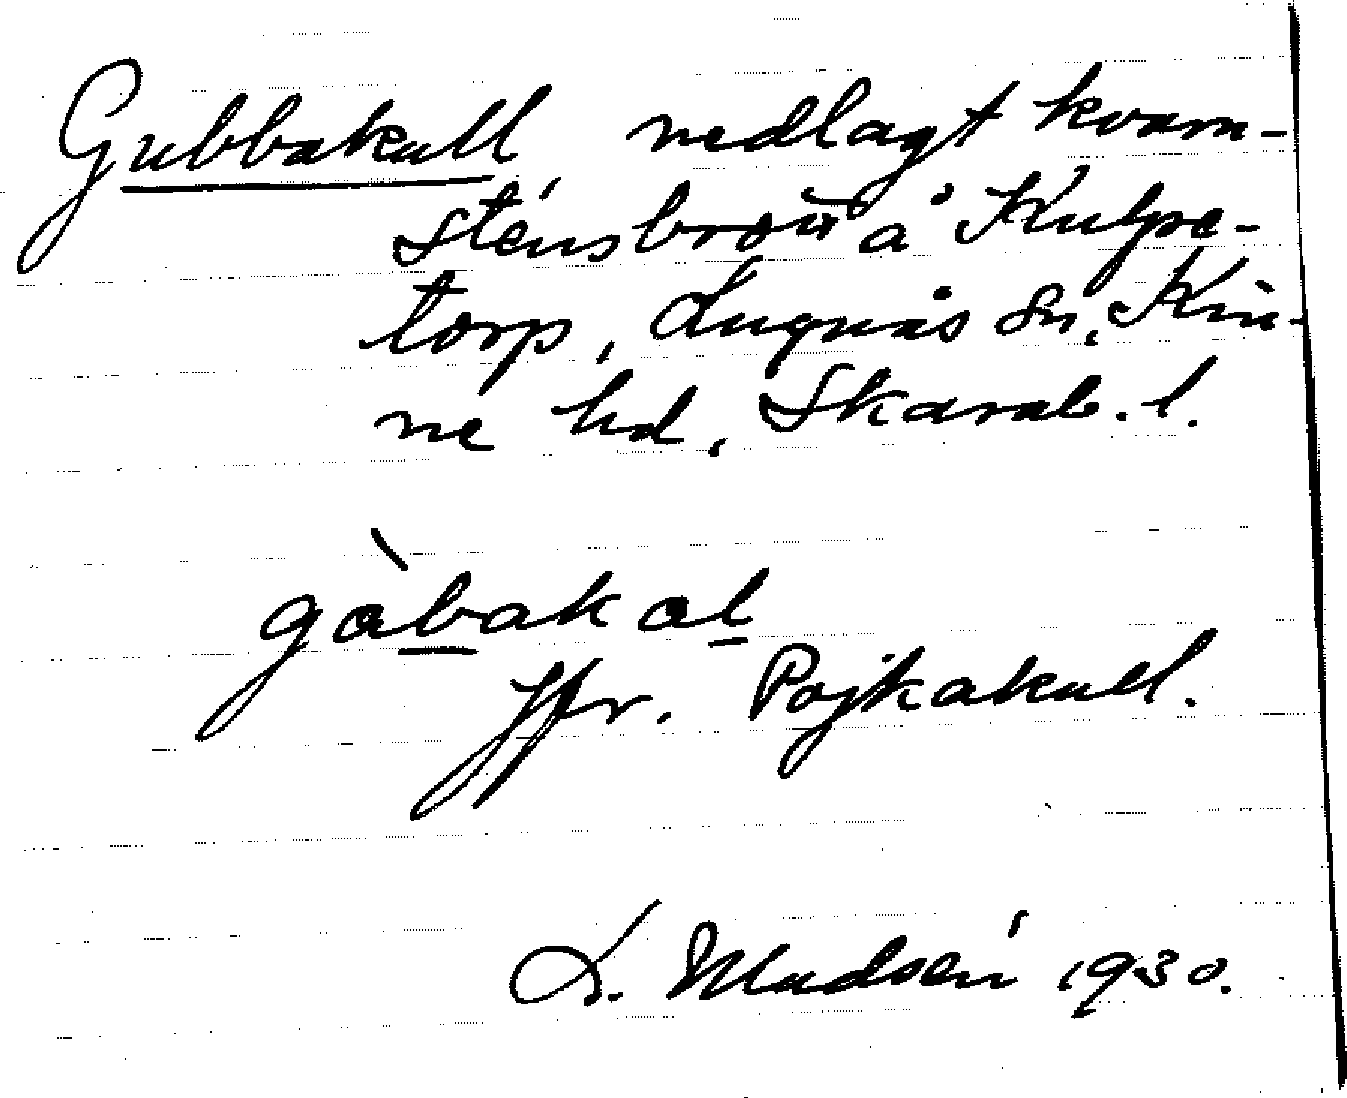 Gubbakull nedlagt kvarn-
stensbrott å Kulpe-
torp, Lugnås sn, Kin-
ne hd, Skarab. l.
gàbakal
Jfr. Pojkakull.
1930.